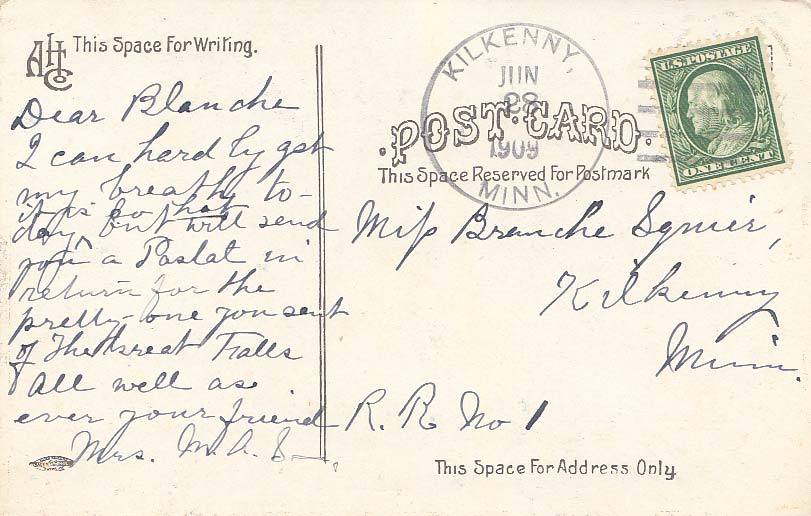 AHT Co
This Space For Writing.
Dear Blanche
I can hardly get
my breath to-
it is so hot
day but will send
you a Postal in
return for the
pretty one you sent
of The Great Falls
All well as
ever your friend
Mrs. M. A. S
KILKENNY,
JUN
28
1909
MINN.
POST CARD.
This Space Reserved For Postmark
U.S. POSTAGE
ONE CENT
Miss Blanche Squier,
Kilkenny
Minn.
R. R No 1
This Space For Address Only